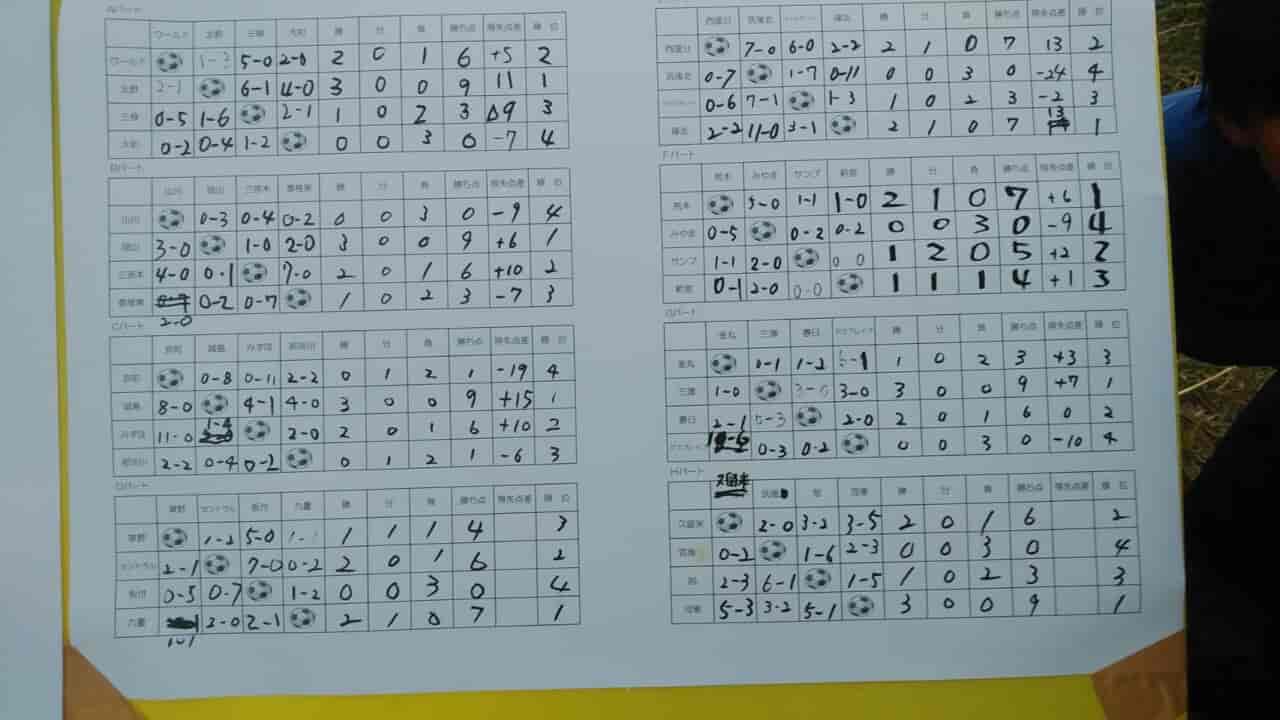 Aパート
ワールド 北野 三笠 大和 勝 分 負 勝ち点 得失点差 順 位
ワールド 1-3 5-0 2-0 2 0 1 6 +5 2
北野 6-1 4-0 3 0 0 9 11 1
0-5 1-6 2-1 1 0 2 3 Δ9 3
0-2 0-4 1-2 0 0 3 0 -7 4
Bパート
山川 三原木 勝 分 負 勝ち点 得失点差 順 位
山川 0-3 0-4 0-2 0 0 3 0 -9 4
3-0 1-0 2-0 3 0 0 9 +6 1
4-0 0-1 7-0 2 0 1 6 +10 2
0-2 0-7 1 0 2 3 -7 3
2-0
Cパート
みずほ 勝 分 負 勝ち点 得失点差 順 位
0-8 0-11 2-2 0 1 2 1 -19 4
8-0 4-1 4-0 3 0 0 9 +15 1
みずほ 11-0 1-4 2-0 2 0 1 6 +10 2
2-2 0-4 0-2 0 1 2 1 -6 3
Dパート
草野 セントラル 九重 勝 分 負 勝ち点 得失点差 順 位
草野 1-2 5-0 1-1 1 1 1 4 3
セントラル 2-1 7-0 0-2 2 0 1 6 2
0-5 0-7 1-2 0 0 3 0 4
九重 2-0 2-1 2 1 0 7 1
1-1
西国分 筑後北 勝 分 負 勝ち点 得失点差 順 位
西国分 7-0 6-0 2-2 2 1 0 7 13 2
筑後北 0-7 1-7 0-11 0 0 3 0 -24 4
0-6 7-1 1-3 1 0 2 3 -2 3
2-2 11-0 3-1 2 1 0 7 13 1
Fパート
荒木 みやま サンプ 勝 分 負 勝ち点 得失点差 順 位
荒木 5-0 1-1 1-0 2 1 0 7 +6 1
みやま 0-5 0-2 0-2 0 0 3 0 -9 4
サンプ 1-1 2-0 0 0 1 2 0 5 +2 2
0-1 2-0 0-0 1 1 1 4 +1 3
Gパート
金丸 三潴 春日 勝 分 負 勝ち点 得失点差 順 位
金丸 0-1 1-2 6-1 1 0 2 3 +3 3
三潴 1-0 3-0 3-0 3 0 0 9 +7 1
春日 2-1 0-3 2-0 2 0 1 6 0 2
1-6 0-3 0-2 0 0 3 0 -10 4
Hパート
久留米 勝 分 負 勝ち点 得失点差 順 位
久留米 2-0 3-2 3-5 2 0 1 6 2
0-2 1-6 2-3 0 0 3 0 4
2-3 6-1 1-5 1 0 2 3 3
5-3 3-2 5-1 3 0 0 9 1